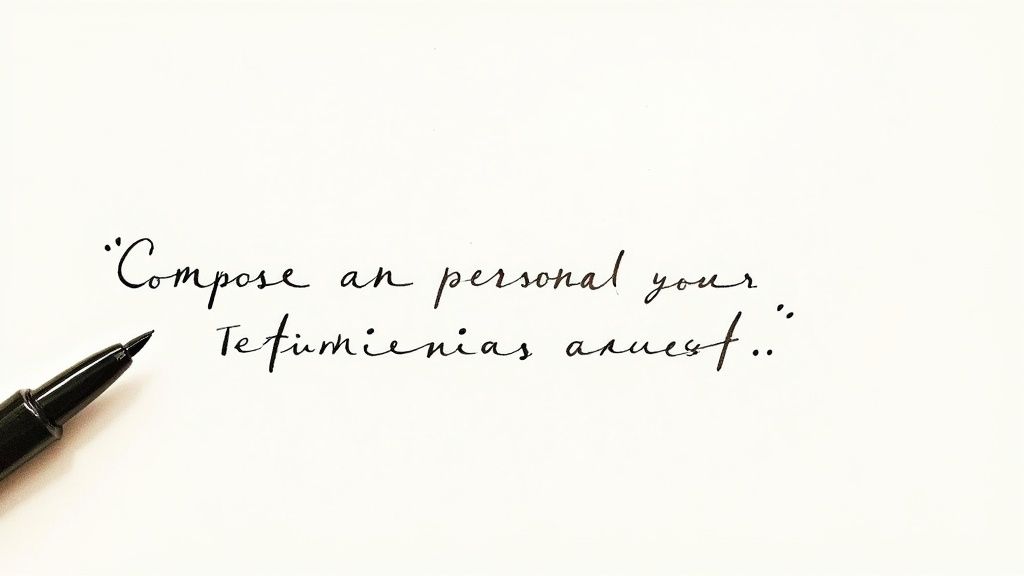 "Compose an personal your
Tetumienias aruest.."